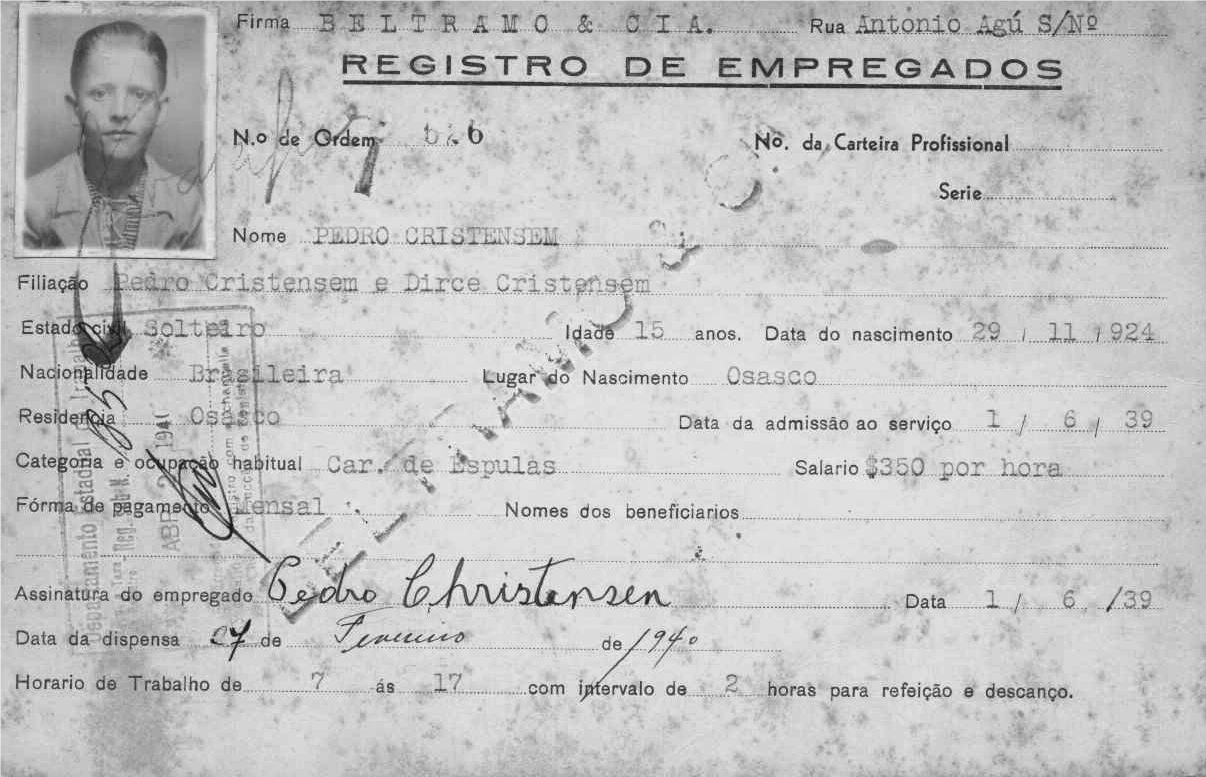 Firma BELTRAMO & CIA. Rua Antonio Agú S/Nº
REGISTRO DE EMPREGADOS
N.o de Ordem 626
No. da Carteira Profissional
Serie
Nome PEDRO CRISTENSEM
Filiação Pedro Cristensem e Dirce Cristensem
Estado civil Solteiro Idade 15 anos. Data do nascimento 29 / 11 / 924
Nacionalidade Brasileira Lugar do Nascimento Osasco
Residencia Osasco Data da admissão ao serviço 1 / 6 / 39
Categoria e ocupação habitual Car. de Espulas Salario $350 por hora
Fórma de pagamento Mensal Nomes dos beneficiarios
Assinatura do empregado Pedro Christensen Data 1 / 6 / 39
Data da dispensa 27 de Fevereiro de 1940
Horario de Trabalho de 7 ás 17 com intervalo de 2 horas para refeição e descanço.
Departamento Estadual
ABR 1941